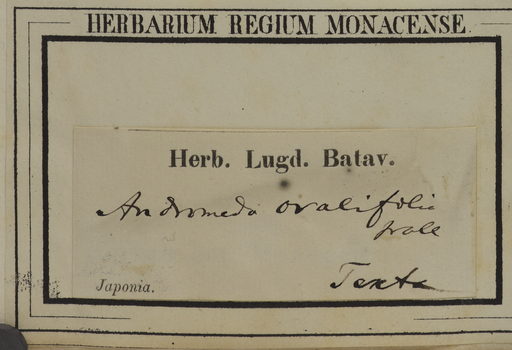 HERBARIUM REGIUM MONACENSE
Herb. Lugd. Batav.
Andromeda ovalifolia
Japonia.
Texta